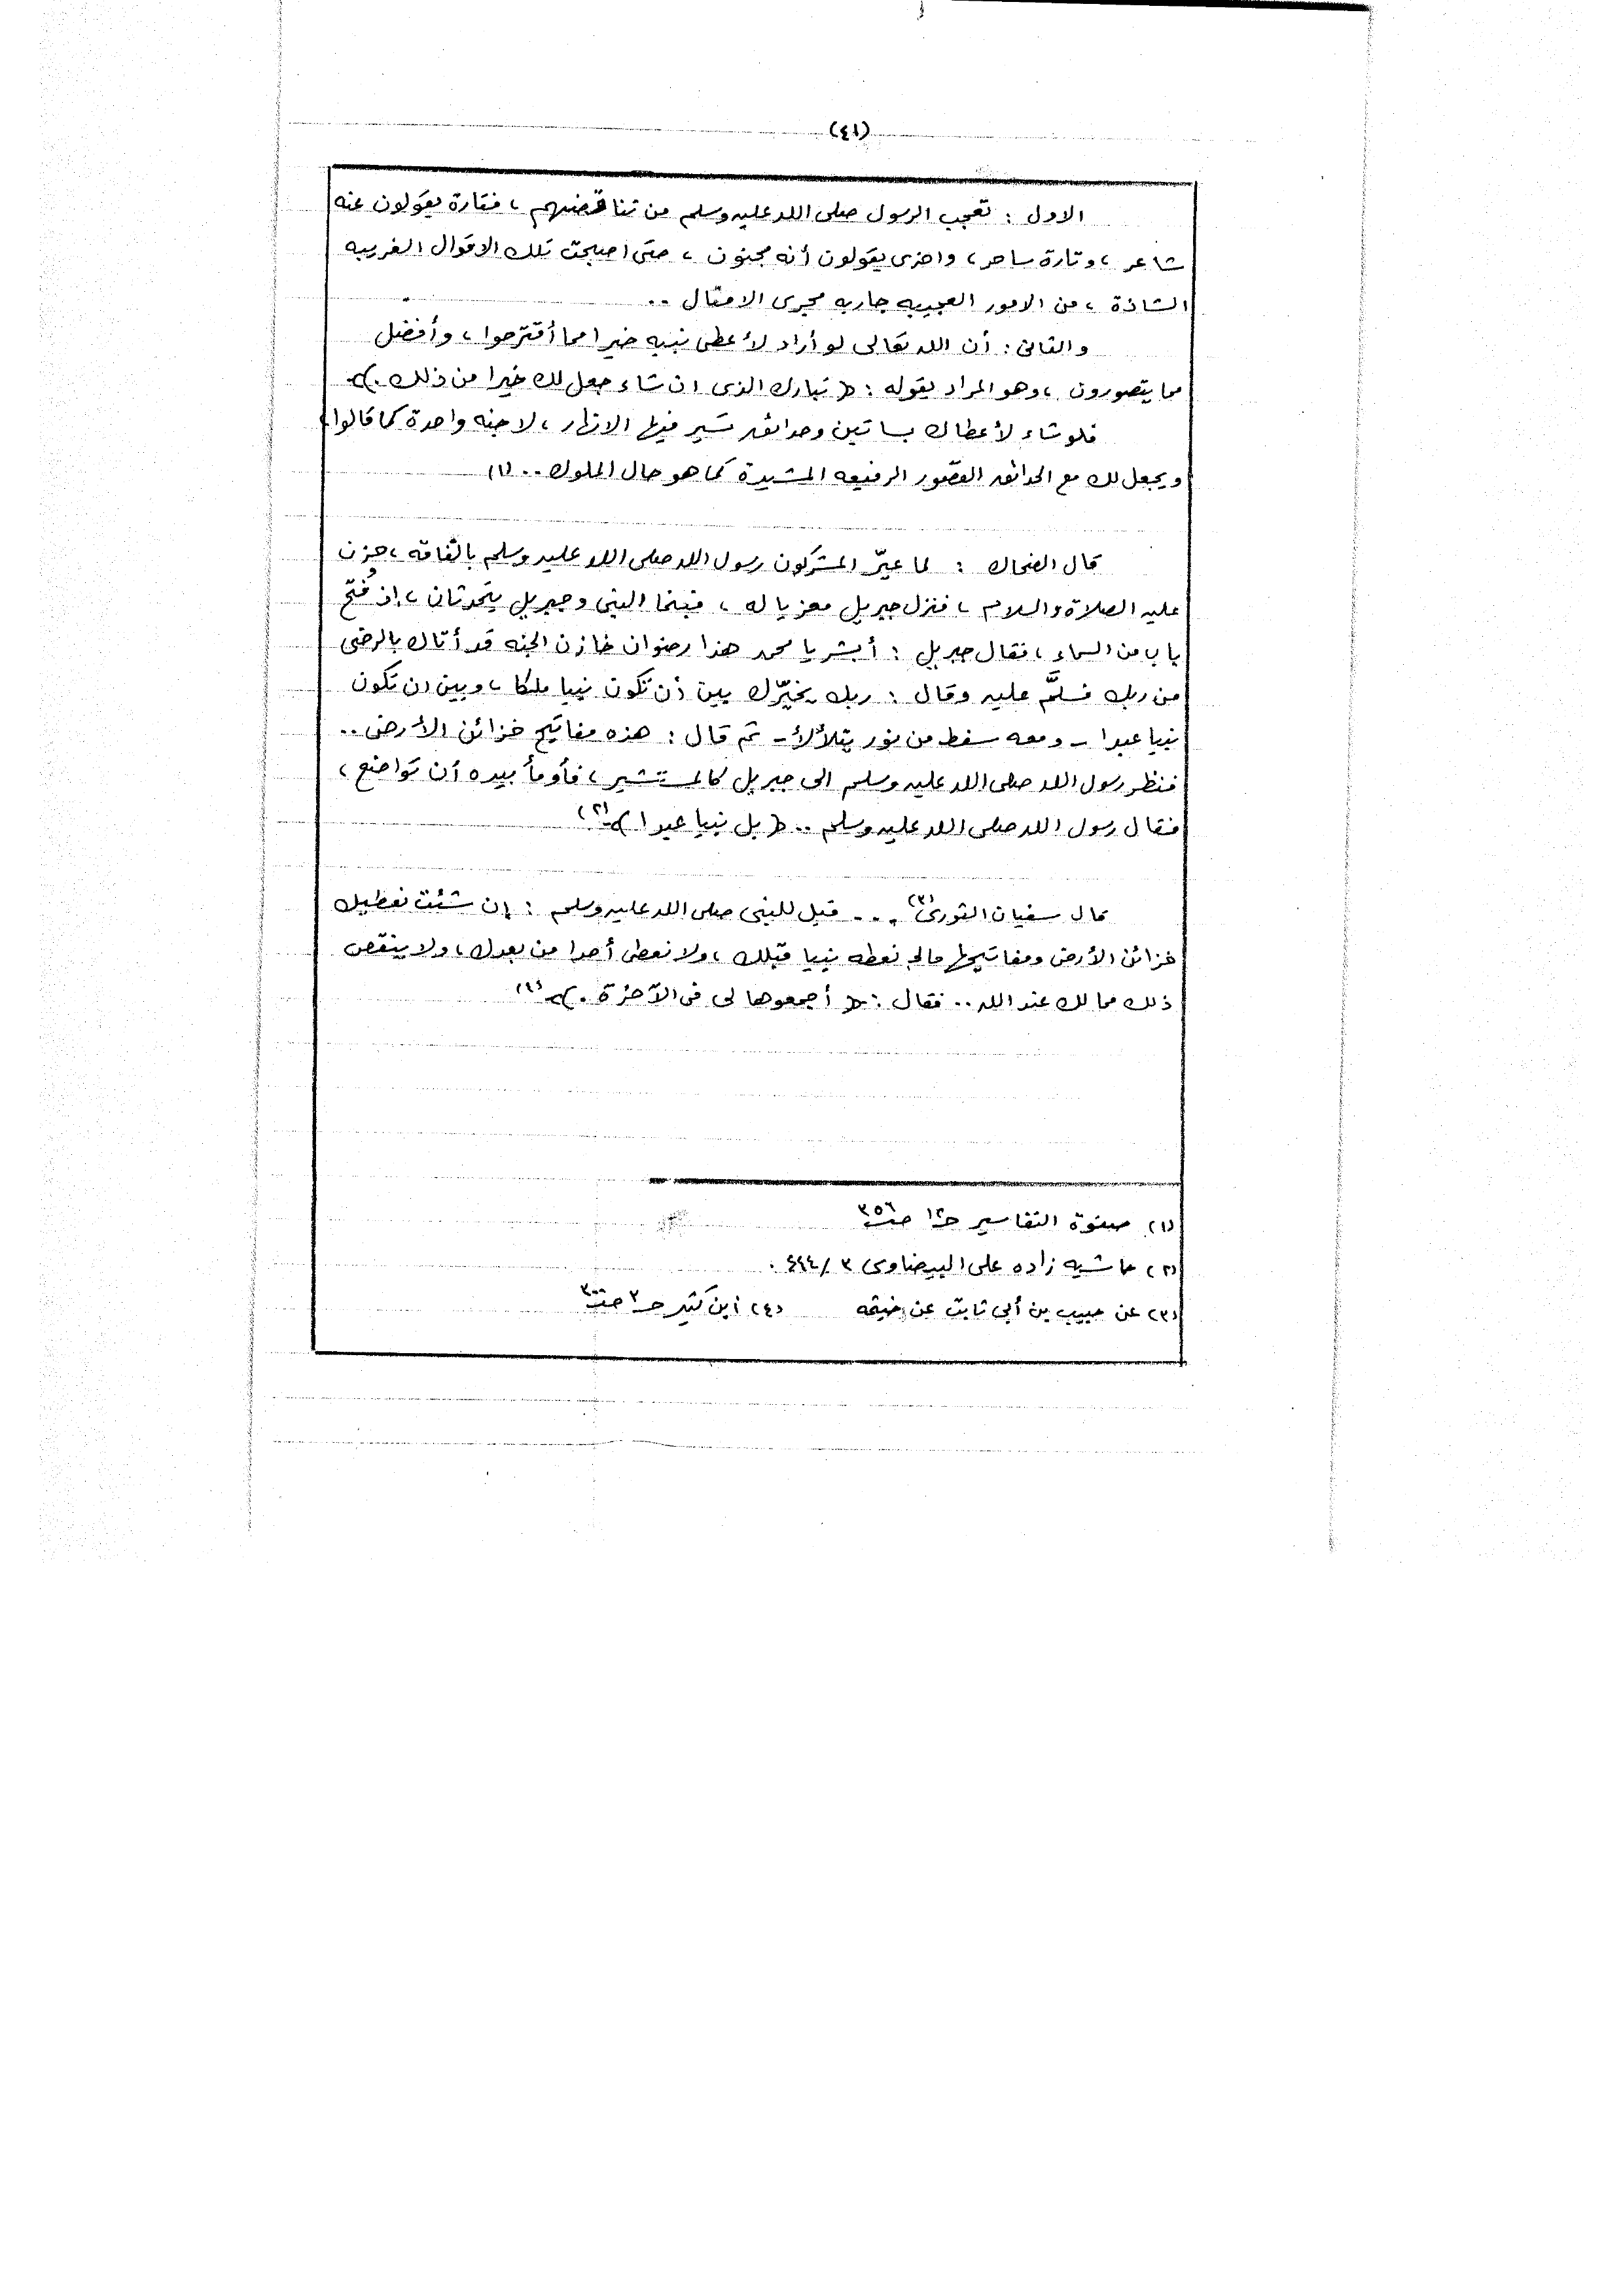 (٤١)
الاول : تعجب الرسول صلى الله عليه وسلم من تناقضهم ، فتارة يقولون عنه
شاعر ، وتارة ساحر ، واخرى يقولون أنه مجنون ، حتى اصبحت تلك الاقوال الغريبه
الشاذة ، من الامور العجيبه جاريه مجرى الامثال ..
والثانى : أن الله تعالى لو أراد لأعطى نبيه خيرا مما أقترحوا ، وأفضل
مما يتصورون ، وهو المراد بقوله : ﴿ تبارك الذى ان شاء جعل لك خيرا من ذلك . ﴾
فلو شاء لأعطاك بساتين وحدائق تسير فيها الانهار ، لا جنه واحدة كما قالوا ،
ويجعل لك مع الحدائق القصور الرفيعه المشيدة كما هو حال الملوك .. (١)
قال الضحاك : لما عيّر المشركون رسول الله صلى الله عليه وسلم بالفاقه ، حزن
عليه الصلاة والسلام ، فنزل جبريل معزيا له ، فبينما النبى وجبريل يتحدثان ، إذ فُتح
باب من السماء ، فقال جبريل : أبشر يا محمد هذا رضوان خازن الجنه قد أتاك بالرضى
من ربك فسلَّم عليه وقال : ربك يخيّرك بين أن تكون نبيا ملكا ، وبين ان تكون
نبيا عبدا - ومعه سفط من نور يتلألأ - ثم قال : هذه مفاتيح خزائن الأرض ..
فنظر رسول الله صلى الله عليه وسلم الى جبريل كالمستشير ، فأومأ بيده أن تواضع ،
فقال رسول الله صلى الله عليه وسلم .. ﴿ بل نبيا عبدا ﴾ (٢)
قال سفيان الثورى (٣) ... قيل للنبى صلى الله عليه وسلم : إن شئت نعطيك
خزائن الأرض ومفاتيحها مالم نعطه نبيا قبلك ، ولا نعطى أحدا من بعدك ، ولا ينقص
ذلك مما لك عند الله .. فقال : ﴿ أجمعوها لى فى الآخرة . ﴾ (٤)
(١) صفوة التفاسير ح١٢ ص ٣٥٦
(٢) حاشيه زاده على البيضاوى ٣ / ٤٤٤ .
(٣) عن حبيب بن أبى ثابت عن خيثمه (٤) أبن كثير حـ ٣ ص ٣٠٠